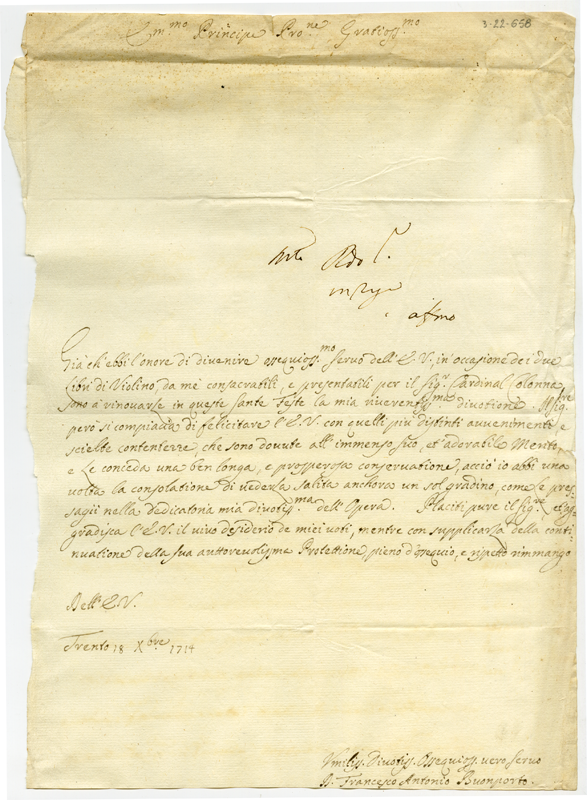 3-22-658
Em.mo Principe Pro.ne Gratioss.mo
Già ch'ebbi l'onore di divenire ossequioss.mo servo dell'E.V., in occasione dei due
Libri di Violino da me consecratili, e presentatili per il Sig.r Cardinal Colonna
sono a rinovarle in queste sante Feste la mia riverentiss.ma divotione. Il Sig.re
però si compiaccia di felicitare l'E.V. con quelli più distinti avvenimenti e
scielte contentezze, che sono dovute all'immenso suo, et adorabile Merito,
e Le conceda una ben longa, e prosperosa conservatione, acciò io abbi una
volta la consolatione di vederla salita anchora un sol gradino, come le pres-
sagii nella Dedicatoria mia divotiss.ma dell'Opera. Placiti pure il Sig.re, et ag-
gradisca l'E.V. il vivo desiderio de miei voti, mentre con supplicarla della conti-
nuatione della sua auttorevolissma Protettione pieno d'ossequio, e rispetto rimmango
Dell'E.V.
Trento 18 Xbre 1714
Vmiliss. Divotiss. Ossequioss. vero servo
Francesco Antonio Buonporto.